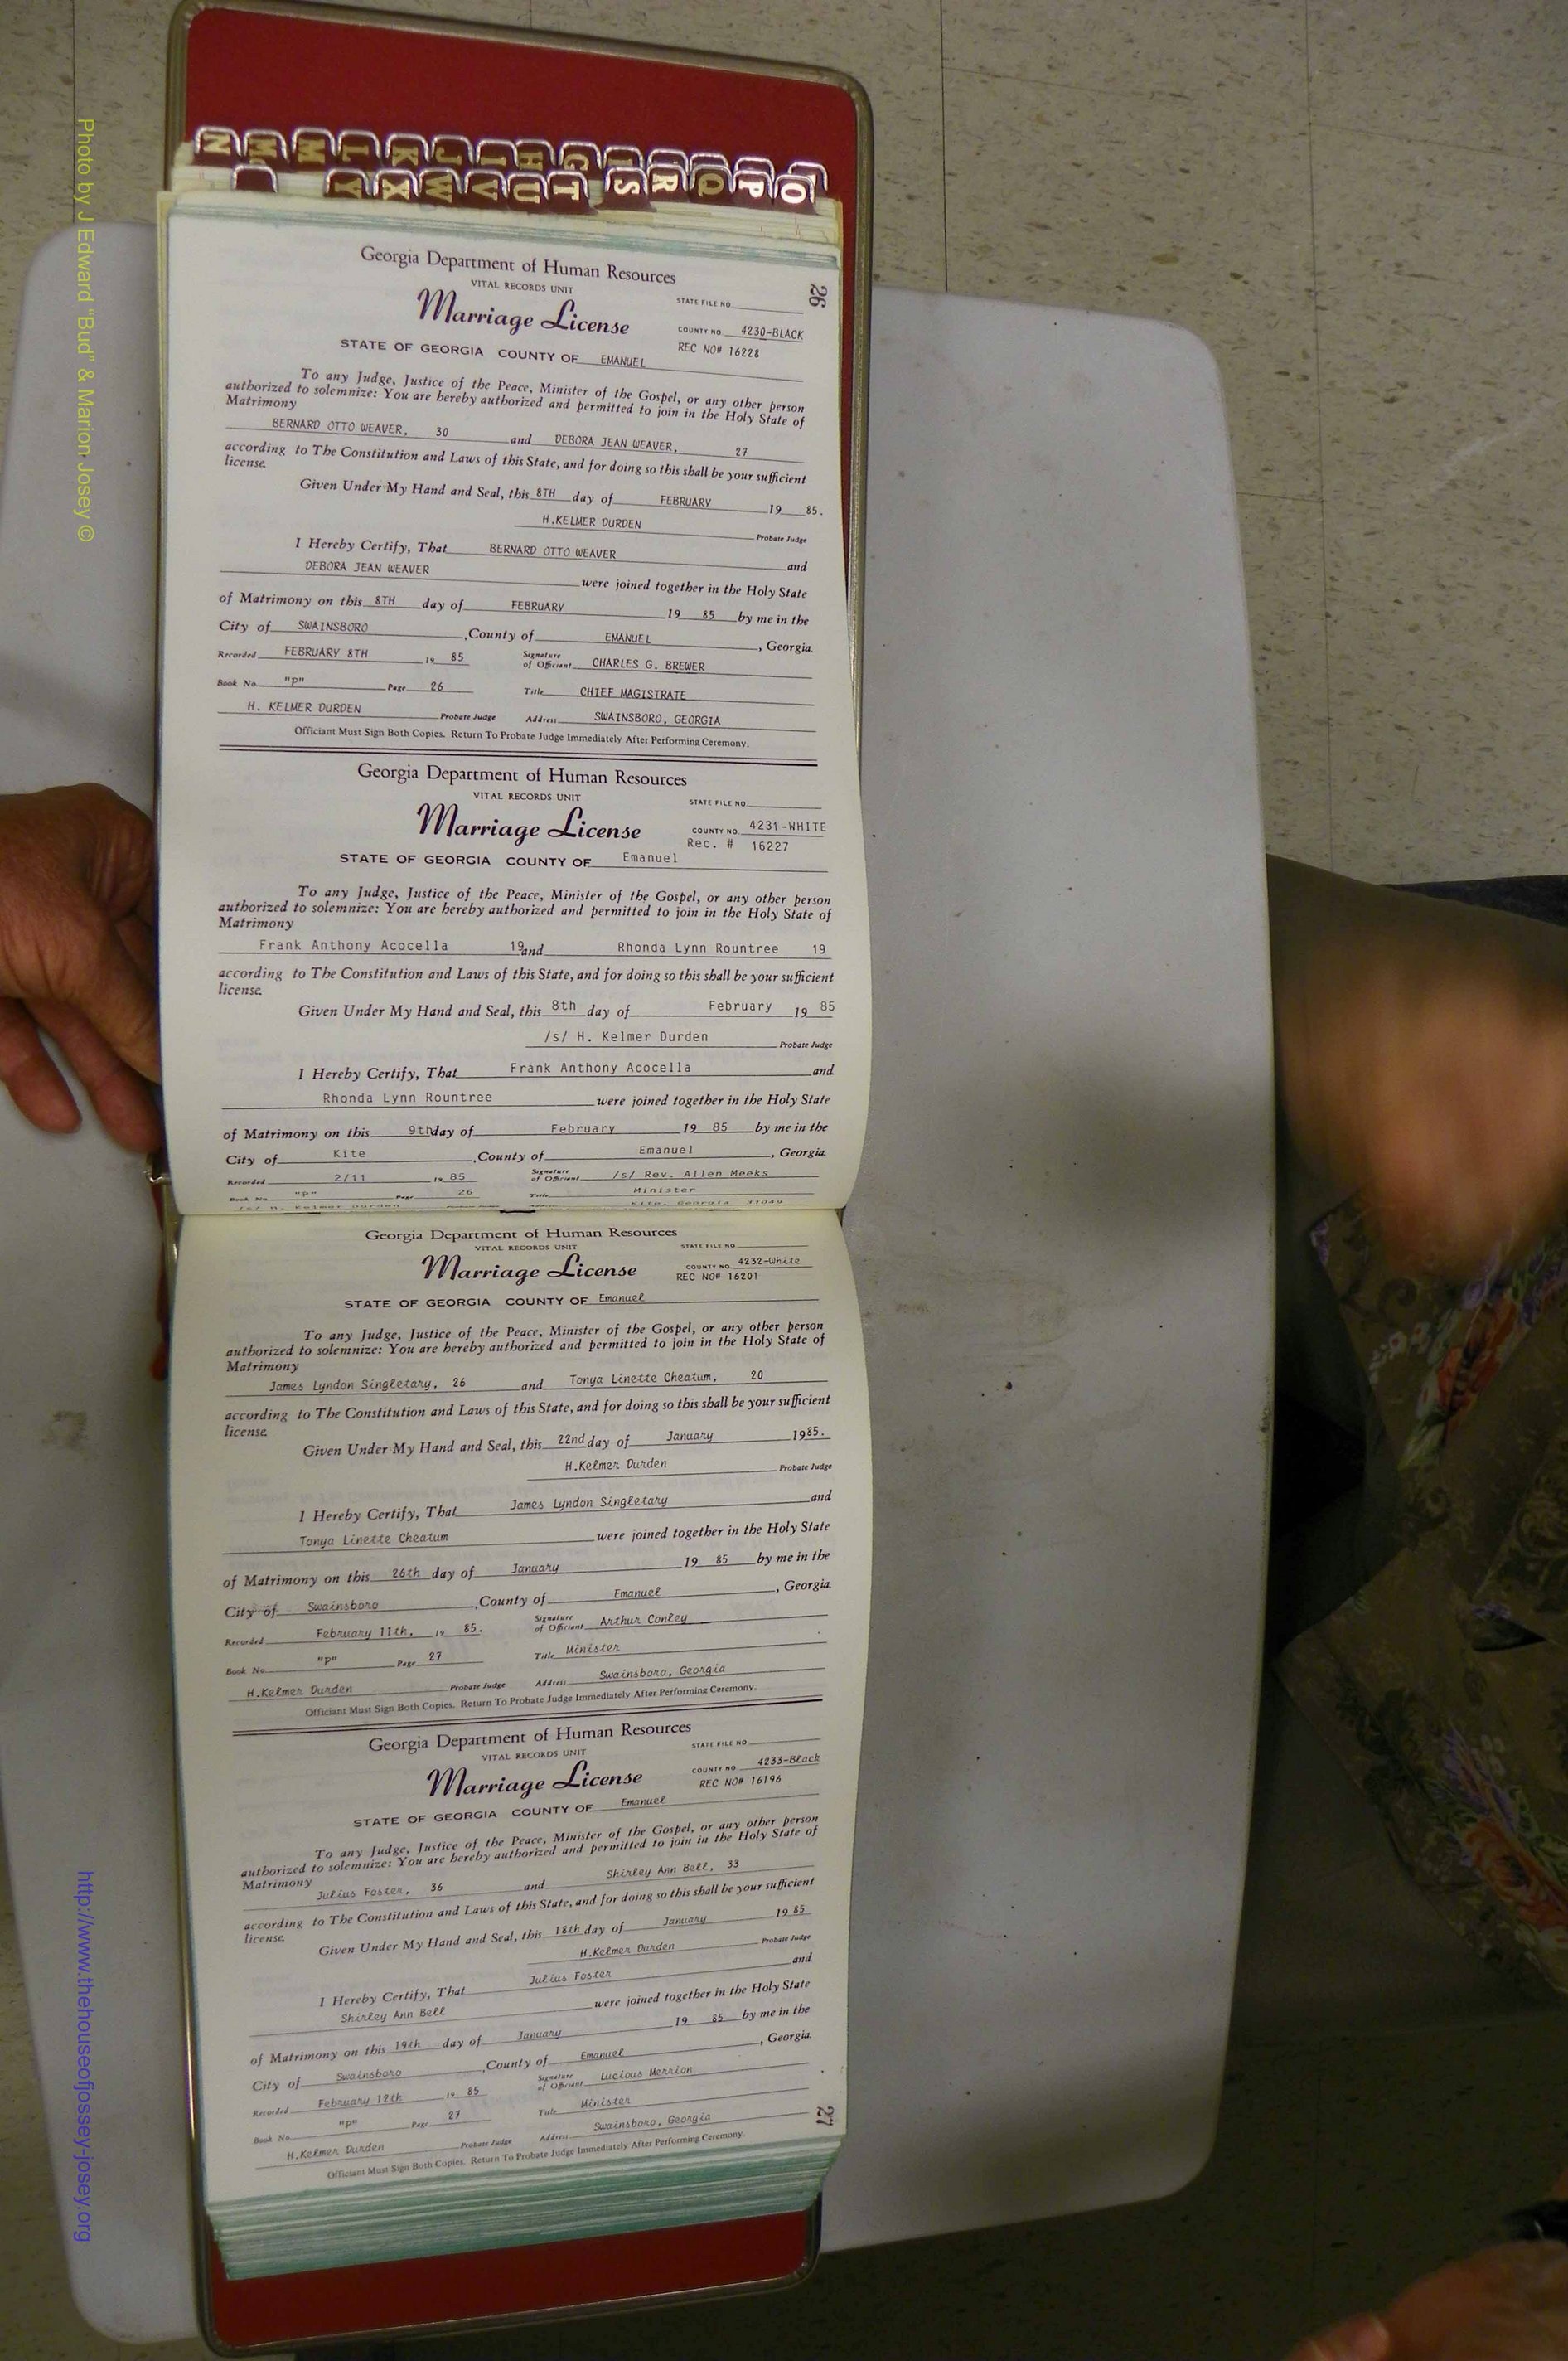 N M M L K J I H G
Y X W V U T S R Q P O
26
Georgia Department of Human Resources
VITAL RECORDS UNIT
STATE FILE NO
Marriage License
COUNTY NO. 4230-BLACK
REC NO# 16228
STATE OF GEORGIA COUNTY OF EMANUEL
To any Judge, Justice of the Peace, Minister of the Gospel, or any other person
authorized to solemnize: You are hereby authorized and permitted to join in the Holy State of
Matrimony
BERNARD OTTO WEAVER, 30 and DEBORA JEAN WEAVER, 27
according to The Constitution and Laws of this State, and for doing so this shall be your sufficient
license.
Given Under My Hand and Seal, this 8TH day of FEBRUARY 19 85.
H.KELMER DURDEN
Probate Judge
I Hereby Certify, That BERNARD OTTO WEAVER and
DEBORA JEAN WEAVER were joined together in the Holy State
of Matrimony on this 8TH day of FEBRUARY 19 85 by me in the
City of SWAINSBORO ,County of EMANUEL , Georgia.
Recorded FEBRUARY 8TH 19 85 Signature of Officiant CHARLES G. BREWER
Book No. "p" Page 26 Title CHIEF MAGISTRATE
H. KELMER DURDEN Probate Judge Address SWAINSBORO, GEORGIA
Officiant Must Sign Both Copies. Return To Probate Judge Immediately After Performing Ceremony.
Georgia Department of Human Resources
VITAL RECORDS UNIT
STATE FILE NO
Marriage License
COUNTY NO. 4231-WHITE
Rec. # 16227
STATE OF GEORGIA COUNTY OF Emanuel
To any Judge, Justice of the Peace, Minister of the Gospel, or any other person
authorized to solemnize: You are hereby authorized and permitted to join in the Holy State of
Matrimony
Frank Anthony Acocella 19 and Rhonda Lynn Rountree 19
according to The Constitution and Laws of this State, and for doing so this shall be your sufficient
license.
Given Under My Hand and Seal, this 8th day of February 19 85
/s/ H. Kelmer Durden
Probate Judge
I Hereby Certify, That Frank Anthony Acocella and
Rhonda Lynn Rountree were joined together in the Holy State
of Matrimony on this 9th day of February 19 85 by me in the
City of Kite ,County of Emanuel , Georgia.
Recorded 2/11 19 85 Signature of Officiant /s/ Rev. Allen Meeks
Book No. "p" Page 26 Title Minister
/s/ H. Kelmer Durden Kite, Georgia 31049
Georgia Department of Human Resources
VITAL RECORDS UNIT
STATE FILE NO
Marriage License
COUNTY NO. 4232-White
REC NO# 16201
STATE OF GEORGIA COUNTY OF Emanuel
To any Judge, Justice of the Peace, Minister of the Gospel, or any other person
authorized to solemnize: You are hereby authorized and permitted to join in the Holy State of
Matrimony
James Lyndon Singletary, 26 and Tonya Linette Cheatum, 20
according to The Constitution and Laws of this State, and for doing so this shall be your sufficient
license.
Given Under My Hand and Seal, this 22nd day of January 1985.
H.Kelmer Durden
Probate Judge
I Hereby Certify, That James Lyndon Singletary and
Tonya Linette Cheatum were joined together in the Holy State
of Matrimony on this 26th day of January 19 85 by me in the
City of Swainsboro ,County of Emanuel , Georgia.
Recorded February 11th, 19 85. Signature of Officiant Arthur Conley
Book No. "p" Page 27 Title Minister
H.Kelmer Durden Probate Judge Address Swainsboro, Georgia
Officiant Must Sign Both Copies. Return To Probate Judge Immediately After Performing Ceremony.
Georgia Department of Human Resources
VITAL RECORDS UNIT
STATE FILE NO
Marriage License
COUNTY NO. 4233-Black
REC NO# 16196
STATE OF GEORGIA COUNTY OF Emanuel
To any Judge, Justice of the Peace, Minister of the Gospel, or any other person
authorized to solemnize: You are hereby authorized and permitted to join in the Holy State of
Matrimony
Julius Foster, 36 and Shirley Ann Bell, 33
according to The Constitution and Laws of this State, and for doing so this shall be your sufficient
license.
Given Under My Hand and Seal, this 18th day of January 19 85
H.Kelmer Durden
Probate Judge
I Hereby Certify, That Julius Foster and
Shirley Ann Bell were joined together in the Holy State
of Matrimony on this 19th day of January 19 85 by me in the
City of Swainsboro ,County of Emanuel , Georgia.
Recorded February 12th 19 85 Signature of Officiant Lucious Merrion
Book No. "p" Page 27 Title Minister
H.Kelmer Durden Probate Judge Address Swainsboro, Georgia
Officiant Must Sign Both Copies. Return To Probate Judge Immediately After Performing Ceremony.
27
Photo by J Edward "Bud" & Marion Josey ©
http://www.thehouseofjossey-josey.org